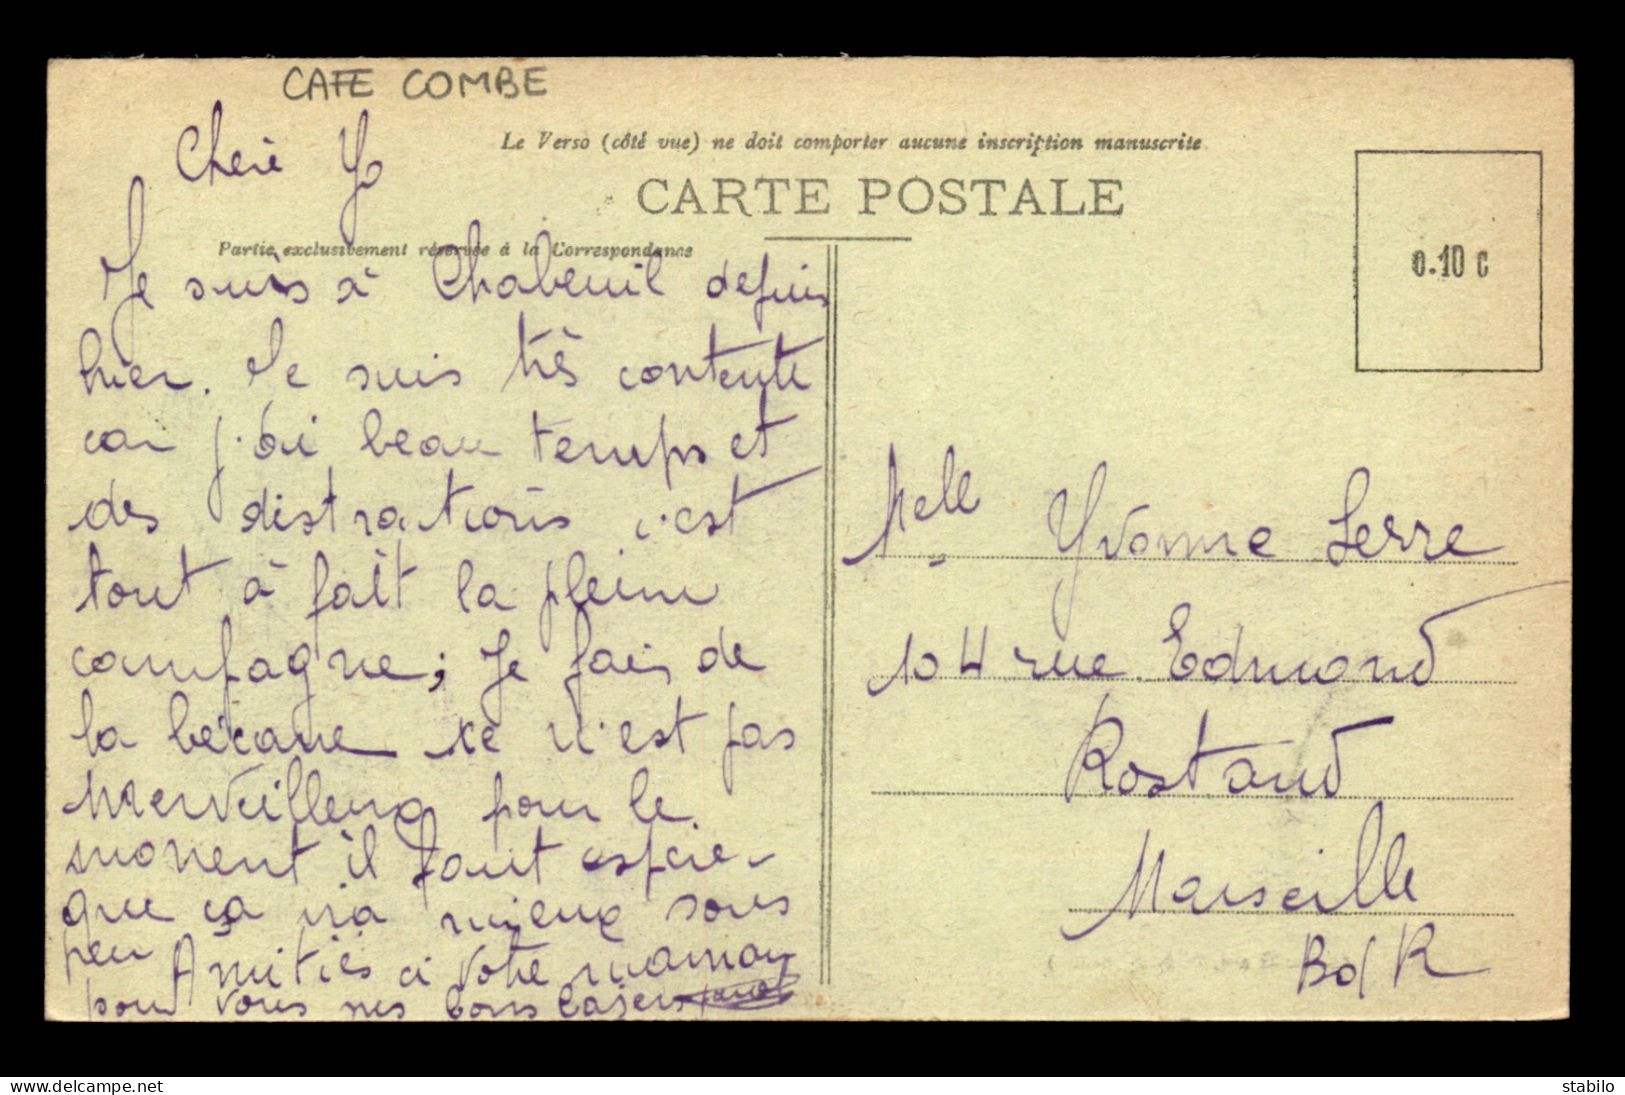 CAFE COMBE
Le Verso (côté vue) ne doit comporter aucune inscription manuscrite
CARTE POSTALE
Partie exclusivement réservée à la Correspondance
0.10 c
Cherè Yo
Je suis à Chabeuil depuis
hier. Je suis très contente
car j'ai beau temps et
des distractions c'est
tout à fait la pleine
campagne; Je fais de
la bécane ce n'est pas
Merveilleux pour le
moment il faut espére
que ça ira mieux sous
peu Amitiés à votre maman
pour vous mes bons baisers
Melle Yvonne Serre
104 rue Edmond
Rostand
Marseille
Bd R
www.delcampe.net
stabilo